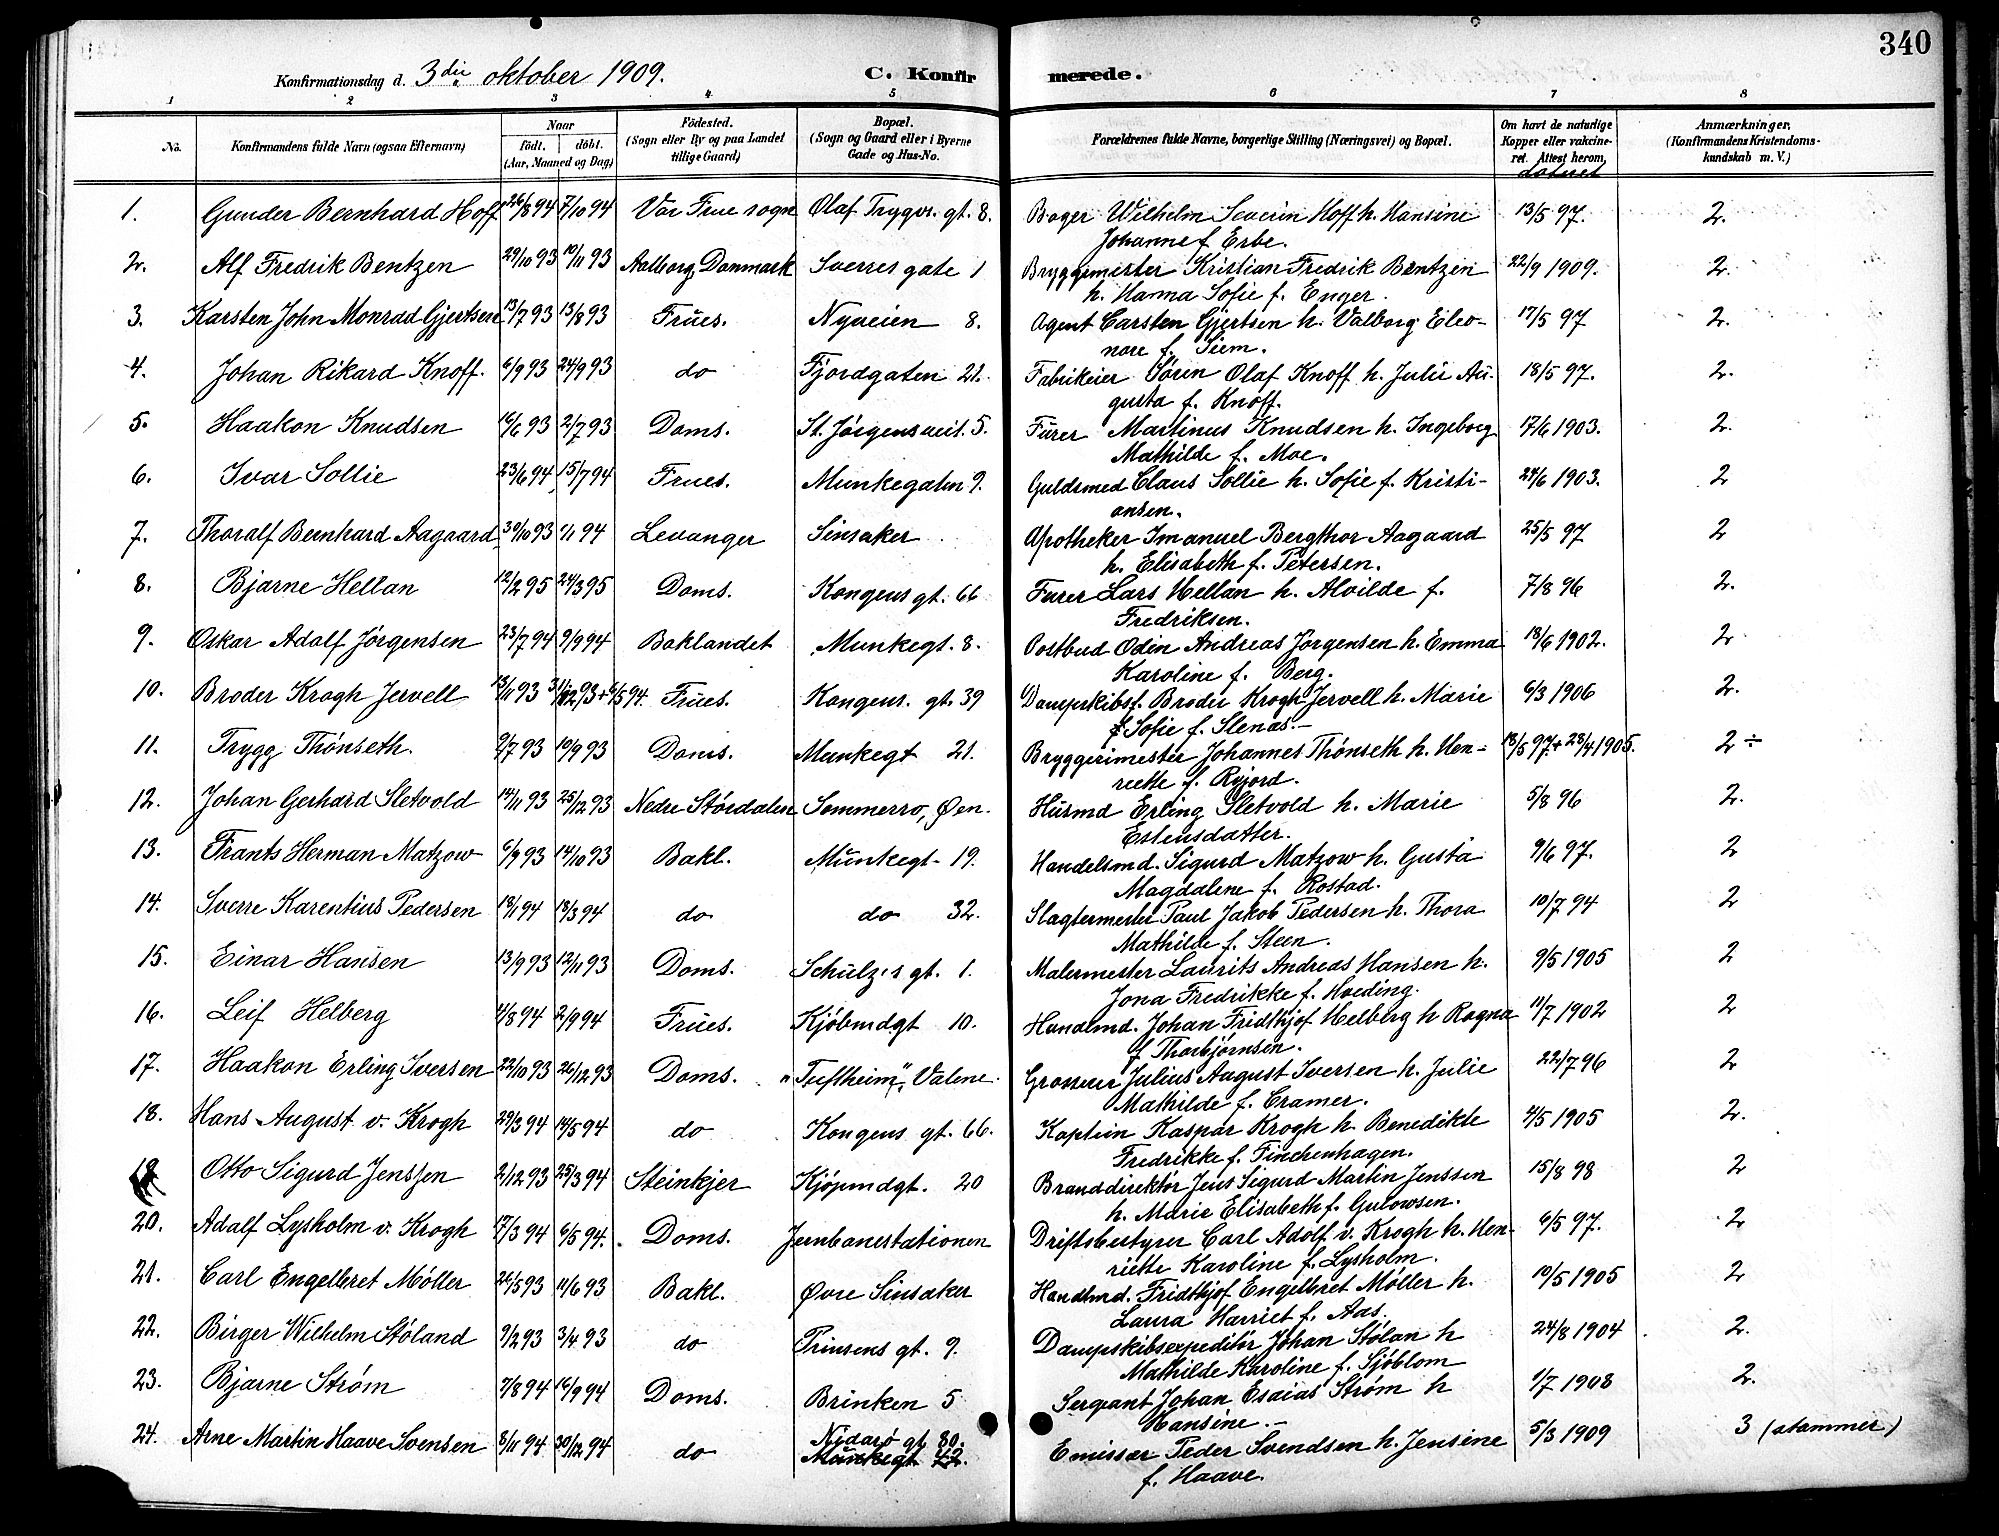 340
Konfirmationsdag d. 3die oktober 1909. C. Konfirmerede.
1 2 3 4 5 6 7 8
No. Konfirmandens fulde Navn (ogsaa Efternavn) Naar født. døbt. (Aar, Maaned og Dag) Fødested. (Sogn eller By og paa Landet tillige Gaard) Bopæl. (Sogn og Gaard eller i Byerne Gade og Hus-No. Forældrenes fulde Navne, borgerlige Stilling (Næringsvei) og Bopæl. Om havt de naturlige Kopper eller vakcineret. Attest herom, datuet Anmærkninger. (Konfirmandens Kristendomskundskab m. V.)
1. Gunder Bernhard Hoff 26/8 94 7/10 94 Vår Frue sogn Olaf Trygvs. gt. 8. Bager Wilhelm Severin Hoff h. Hansine 13/5 97. 2.
Johanne f. Erbe.
2. Alf Fredrik Bentzen 29/10 93 10/11 93 Aalborg, Danmark Sverres gate 1 Bryggemester Kristian Fredrik Bentzen 22/9 1909. 2.
h. Hanna Sofie f. Enger.
3. Karsten John Monrad Gjertsen 13/7 93 13/8 93 Frues. Nyveien 8. Agent Carsten Gjertsen h. Valborg Eleo- 17/5 97 2.
nore f. Siem.
4. Johan Rikard Knoff. 6/9 93 24/9 93 do Fjordgaten 21. Fabrikeier Søren Olaf Knoff h. Julie Au- 18/5 97. 2.
gusta f. Knoff.
5. Haakon Knudsen 16/6 93 2/7 93 Doms. St. Jørgensveit. 5. Furer Martinus Knudsen h. Ingeborg 17/6 1903. 2.
Mathilde f. Moe.
6. Ivar Sollie 23/6 94 15/7 94 Frues. Munkegaten 9. Guldsmed Claus Sollie h. Sofie f. Kristi- 24/6 1903. 2
ansen.
7. Thoralf Bernhard Aagaard 30/10 93 1/1 94 Levanger Sinsaker Apotheker Imanuel Bergthor Aagaard 25/5 97 2
h. Elisabeth f. Petersen.
8. Bjarne Hellan 12/2 95 24/3 95 Doms. Kongens gt. 66 Furer Lars Hellan h. Alvilde f. 7/8 96 2.
Fredriksen.
9. Oskar Adolf Jørgensen 23/7 94 9/9 94 Baklandet Munkegt. 8. Postbud Odin Andreas Jørgensen h. Emma 18/6 1902. 2
Karoline f. Berg.
10. Broder Krogh Jervell 13/11 93 31/12 93 + 6/5 94. Frues. Kongens. gt. 39 Dampskibsf. Broder Krogh Jervell h. Marie 6/3 1906 2.
Sofie f. Stenas.-
11. Trygg Thónseth. 9/7 93 10/9 93 Doms. Munkegt 21. Bryggerimester Johannes Thónseth h. Hen- 18/5 97. + 28/4 1905. 2 ÷
riette f. Ryjord.
12. Johan Gerhard Sletvold 14/11 93 25/12 93 Nedre Stördalen Sommerro, Øen. Husmd Erling Sletvold h. Marie 5/8 96 2.
Estensdatter.
13. Frants Herman Matzow 6/9 93 14/10 93 Bakl. Munkegt- 19. Handelsmd. Sigurd Matzow h. Gusta 9/6 97. 2
Magdalene f. Rostad.
14. Sverre Karentius Pedersen 18/1 94 18/3 94 do do 32. Slagtermester Paul Jakob Pedersen h. Thora 10/7 94 2
Mathilde f. Steen.
15. Einar Hansen 13/9 93 12/11 93 Doms. Schulz's gt. 1. Malermester Laurits Andreas Hansen h. 9/5 1905 2
Jona Fredrikke f. Hveding.
16. Leif Helberg 4/8 94 2/9 94 Frues. Kjöbmdgt 10. Handlmd. Johan Fridthjof Helberg h Ragna 11/7 1902 2
f Thorbjørnsen.
17. Haakon Erling Iversen 22/10 93 26/12 93 Doms. "Tuftheim", Valene. Grosserer Julius August Iversen h. Julie 22/7 96 2
Mathilde f. Cramer.
18. Hans August v. Krogh 29/3 94 14/5 94 do Kongens gt. 66. Kaptein Kaspar Krogh h. Benedikte 4/5 1905 2.
Fredrikke f. Finchenhagen.
19 Otto Sigurd Jenssen 2/12 93 25/3 94 Steinkjer Kjøpmdgt. 20 Branddirektör Jens Sigurd Martin Jenssen 15/8 98 2
h. Marie Elisabeth f. Gulowsen.
20. Adolf Lysholm v. Krogh 17/3 94 6/5 94. Doms. Jernbanestationen Driftsbestyrer Carl Adolf v. Krogh h. Hen- 6/5 97. 2
riette Karoline f. Lysholm.
21. Carl Engelbret Møller 26/5 93 11/6 93 Bakl. Øvre Sinsaker Handlmd. Fridthjof Engelbret Møller h. 10/5 1905 2
Laura Harriet f. Aas.
22. Birger Wilhelm Stóland 9/2 93 3/4 93 do Prinsens gt. 9. Dampskibsexpeditör Johan Stólan h 24/8 1904 2.
Mathilde Karoline f. Sjöblom
23. Bjarne Strøm 7/8 94 16/9 94 Doms. Brinken 5 Sergeant Johan Esaias Strøm h 1/7 1908 2.
Hansine.-
24. Arne Martin Haave Svensen 8/11 94 30/12 94 do Nidarø gt 80. Emissær Peder Svendsen h. Jensine 5/3 1909 3 (stammer)
Munkegt 22.
f. Haave.